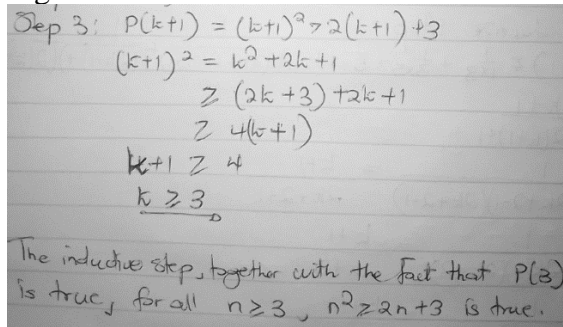 Step 3: P(k+1) = (k+1)² > 2(k+1)+3
(k+1)² = k² + 2k + 1
≥ (2k + 3) + 2k + 1
≥ 4(k+1)
k+1 ≥ 4
k ≥ 3
The inductive step, together with the fact that P(3)
is true, for all n≥3, n²≥2n+3 is true.